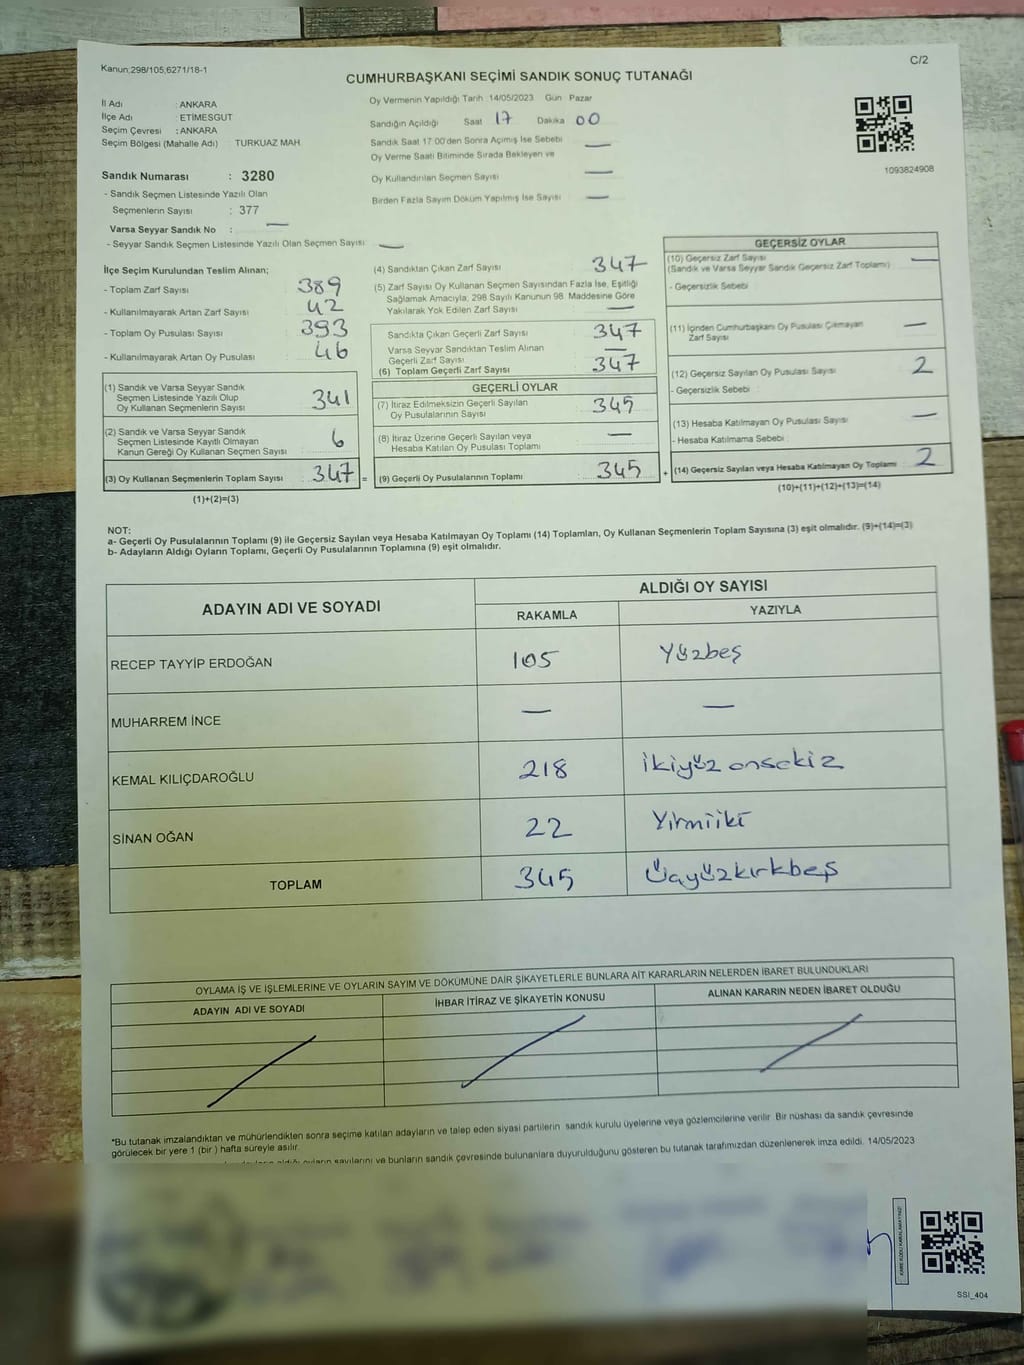 Kanun;298/105;6271/18-1
C/2
CUMHURBAŞKANI SEÇİMİ SANDIK SONUÇ TUTANAĞI
İl Adı : ANKARA
İlçe Adı : ETİMESGUT
Seçim Çevresi : ANKARA
Seçim Bölgesi (Mahalle Adı) TURKUAZ MAH.
Oy Vermenin Yapıldığı Tarih :14/05/2023 Gün Pazar
Sandığın Açıldığı Saat 17 Dakika 00
Sandık Saat 17:00'den Sonra Açımış İse Sebebi —
Oy Verme Saati Bitiminde Sırada Bekleyen ve
Oy Kullandırılan Seçmen Sayısı —
Birden Fazla Sayım Döküm Yapılmış İse Sayısı —
1093824908
Sandık Numarası : 3280
- Sandık Seçmen Listesinde Yazılı Olan
Seçmenlerin Sayısı : 377
Varsa Seyyar Sandık No : —
- Seyyar Sandık Seçmen Listesinde Yazılı Olan Seçmen Sayısı —
İlçe Seçim Kurulundan Teslim Alınan;
- Toplam Zarf Sayısı 389
- Kullanılmayarak Artan Zarf Sayısı 42
- Toplam Oy Pusulası Sayısı 393
- Kullanılmayarak Artan Oy Pusulası 46
(1) Sandık ve Varsa Seyyar Sandık
Seçmen Listesinde Yazılı Olup
Oy Kullanan Seçmenlerin Sayısı 341
(2) Sandık ve Varsa Seyyar Sandık
Seçmen Listesinde Kayıtlı Olmayan
Kanun Gereği Oy Kullanan Seçmen Sayısı 6
(3) Oy Kullanan Seçmenlerin Toplam Sayısı 347 =
(1)+(2)=(3)
(4) Sandıktan Çıkan Zarf Sayısı 347
(5) Zarf Sayısı Oy Kullanan Seçmen Sayısından Fazla İse, Eşitliği
Sağlamak Amacıyla; 298 Sayılı Kanunun 98. Maddesine Göre
Yakılarak Yok Edilen Zarf Sayısı —
Sandıkta Çıkan Geçerli Zarf Sayısı 347
Varsa Seyyar Sandıktan Teslim Alınan
Geçerli Zarf Sayısı —
(6) Toplam Geçerli Zarf Sayısı 347
GEÇERLİ OYLAR
(7) İtiraz Edilmeksizin Geçerli Sayılan
Oy Pusulalarının Sayısı 345
(8) İtiraz Üzerine Geçerli Sayılan veya
Hesaba Katılan Oy Pusulası Toplamı —
(9) Geçerli Oy Pusulalarının Toplamı 345 +
GEÇERSİZ OYLAR
(10) Geçersiz Zarf Sayısı —
(Sandık ve Varsa Seyyar Sandık Geçersiz Zarf Toplamı)
- Geçersizlik Sebebi
(11) İçinden Cumhurbaşkanı Oy Pusulası Çıkmayan
Zarf Sayısı —
(12) Geçersiz Sayılan Oy Pusulası Sayısı 2
- Geçersizlik Sebebi
(13) Hesaba Katılmayan Oy Pusulası Sayısı —
- Hesaba Katılmama Sebebi
(14) Geçersiz Sayılan veya Hesaba Katılmayan Oy Toplamı 2
(10)+(11)+(12)+(13)=(14)
NOT:
a- Geçerli Oy Pusulalarının Toplamı (9) ile Geçersiz Sayılan veya Hesaba Katılmayan Oy Toplamı (14) Toplamları, Oy Kullanan Seçmenlerin Toplam Sayısına (3) eşit olmalıdır. (9)+(14)=(3)
b- Adayların Aldığı Oyların Toplamı, Geçerli Oy Pusulalarının Toplamına (9) eşit olmalıdır.
ADAYIN ADI VE SOYADI
ALDIĞI OY SAYISI
RAKAMLA YAZIYLA
RECEP TAYYİP ERDOĞAN 105 Yüzbeş
MUHARREM İNCE — —
KEMAL KILIÇDAROĞLU 218 İkiyüz onsekiz
SİNAN OĞAN 22 Yirmiiki
TOPLAM 345 Üçyüzkırkbeş
OYLAMA İŞ VE İŞLEMLERİNE VE OYLARIN SAYIM VE DÖKÜMÜNE DAİR ŞİKAYETLERLE BUNLARA AİT KARARLARIN NELERDEN İBARET BULUNDUKLARI
ADAYIN ADI VE SOYADI İHBAR İTİRAZ VE ŞİKAYETİN KONUSU ALINAN KARARIN NEDEN İBARET OLDUĞU
*Bu tutanak imzalandıktan ve mühürlendikten sonra seçime katılan adayların ve talep eden siyasi partilerin sandık kurulu üyelerine veya gözlemcilerine verilir. Bir nüshası da sandık çevresinde
görülecek bir yere 1 (bir ) hafta süreyle asılır.
sayılarını ve bunların sandık çevresinde bulunanlara duyurulduğunu gösteren bu tutanak tarafımızdan düzenlenerek imza edildi. 14/05/2023
SSI_404